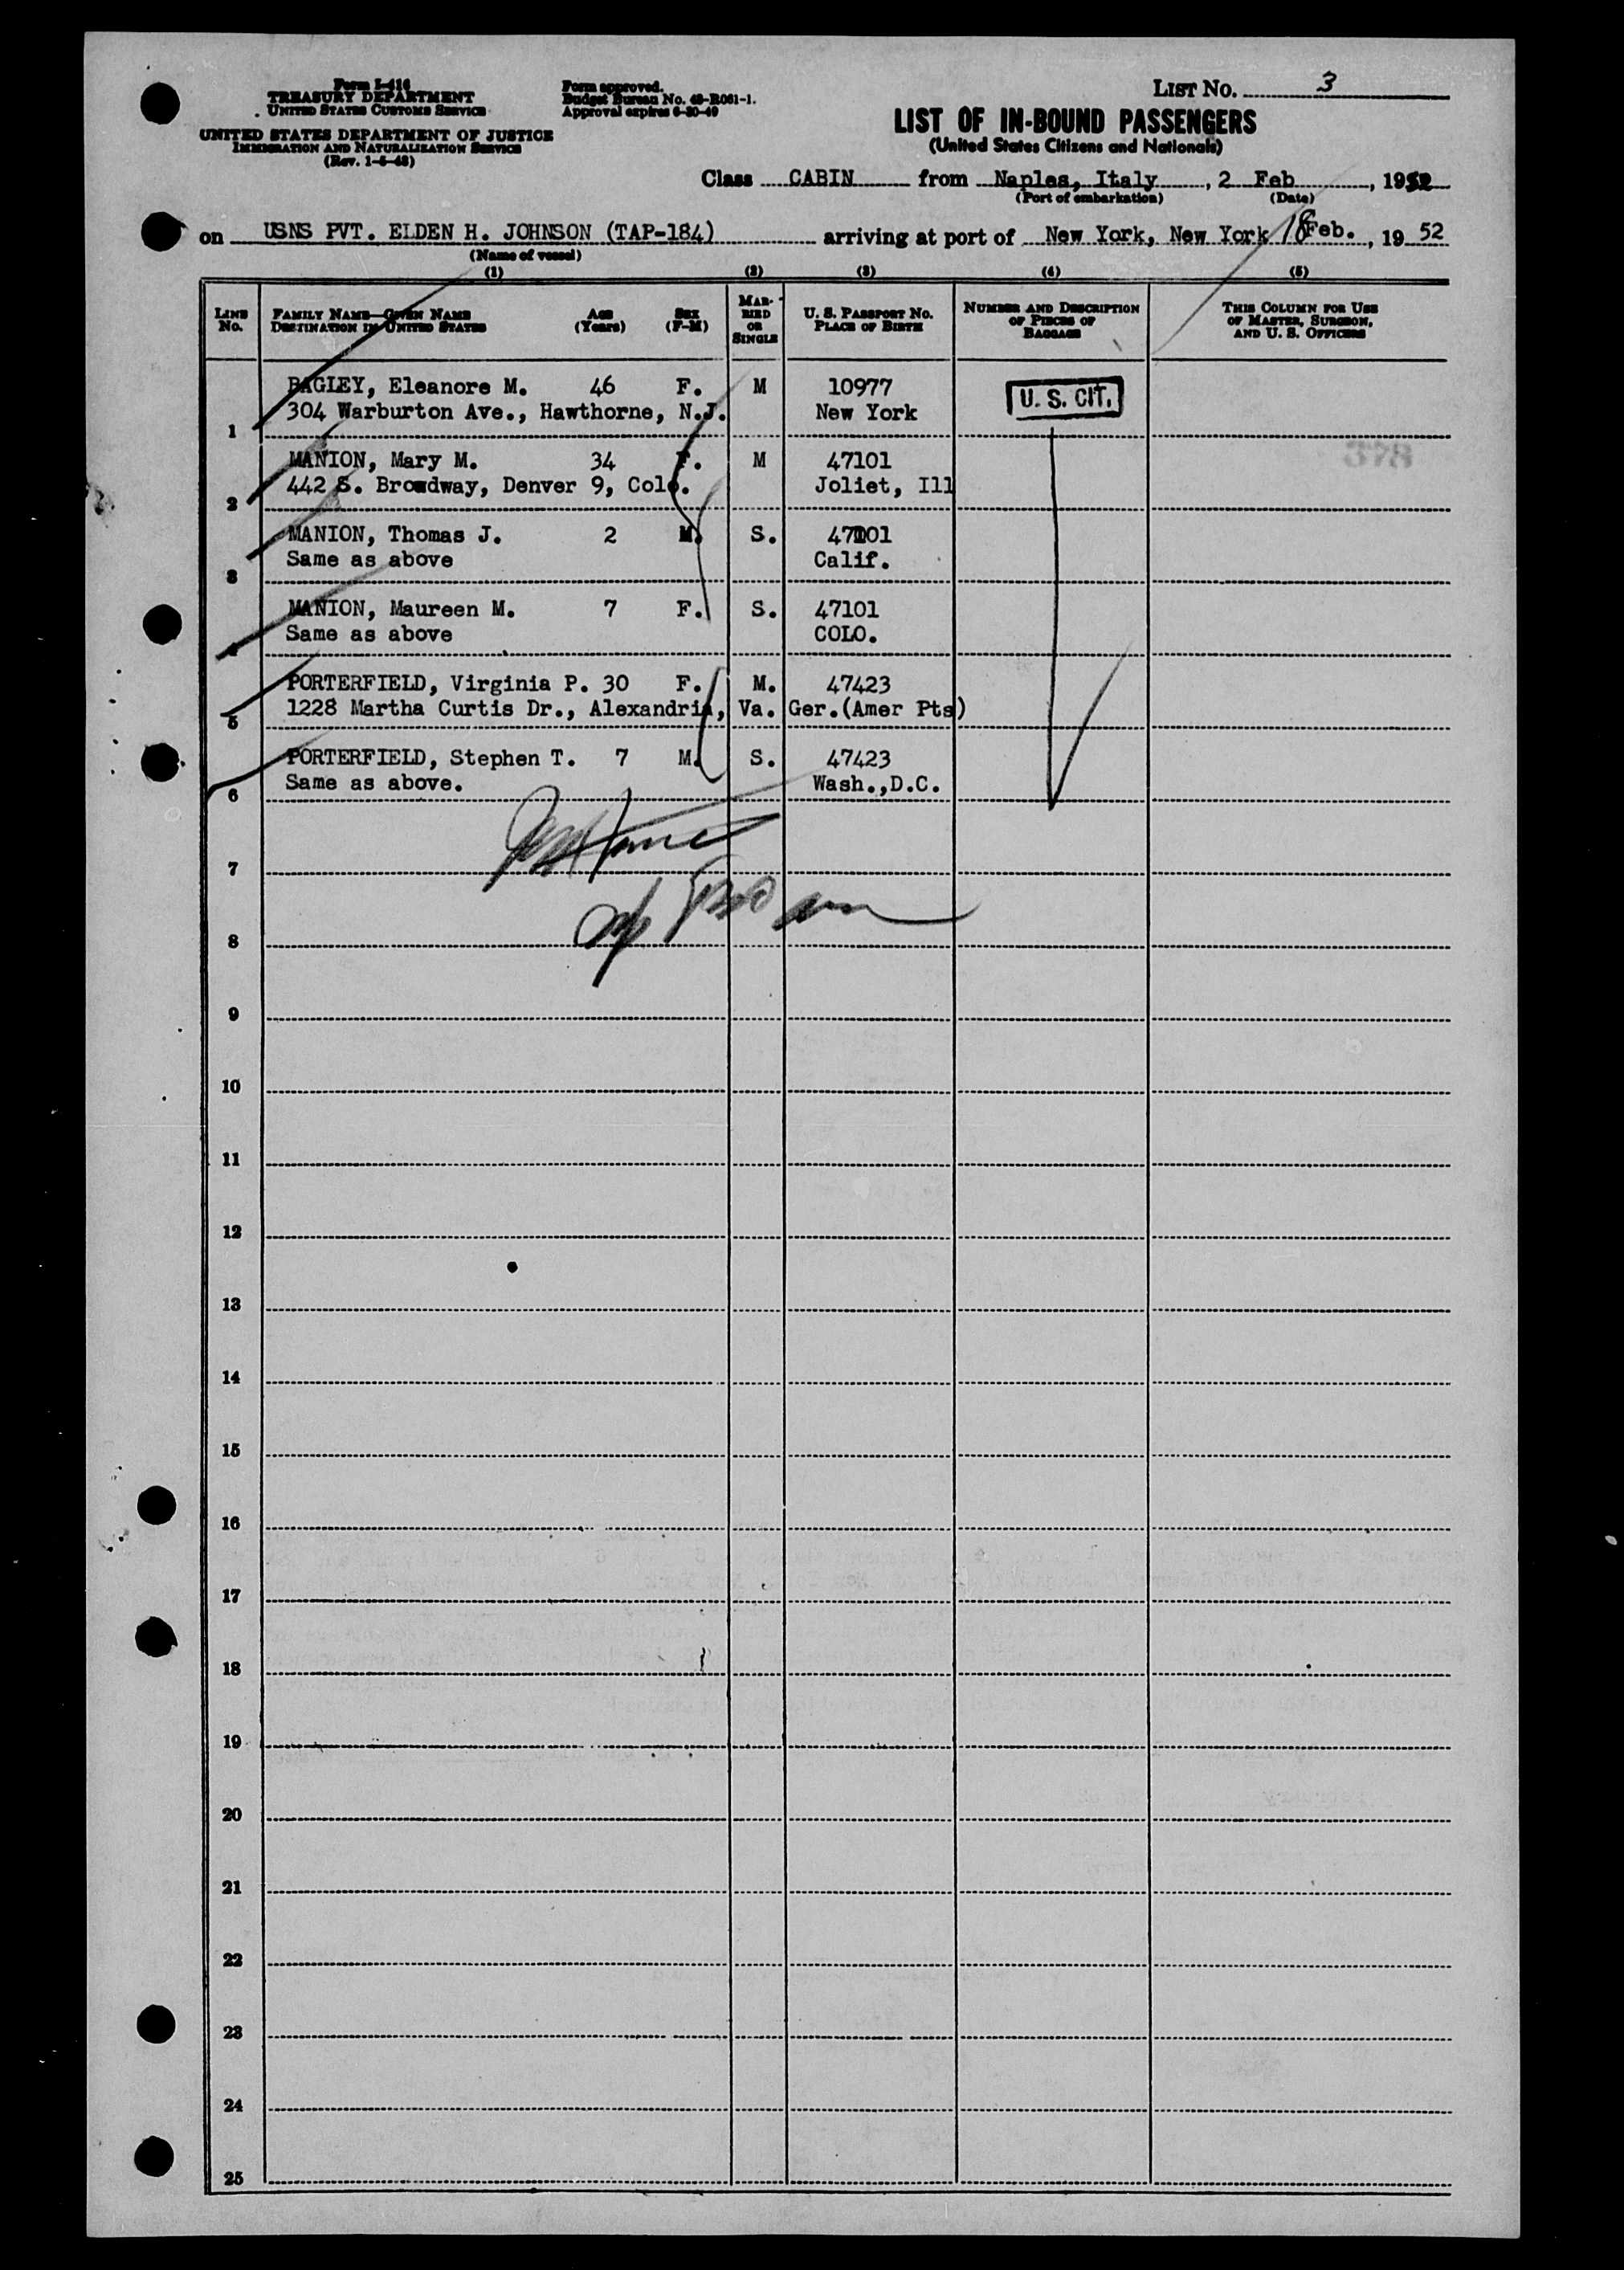 Form I-416
TREASURY DEPARTMENT
UNITED STATES CUSTOMS SERVICE
UNITED STATES DEPARTMENT OF JUSTICE
IMMIGRATION AND NATURALIZATION SERVICE
(Rev. 1-5-48)
Form approved.
Budget Bureau No. 43-R061-1.
Approval expires 6-30-49
LIST No. 3
LIST OF IN-BOUND PASSENGERS
(United States Citizens and Nationals)
Class CABIN from Naples, Italy, 2 Feb, 1952
(Port of embarkation) (Date)
on USNS PVT. ELDEN H. JOHNSON (TAP-184) arriving at port of New York, New York 18 Feb., 19 52
(Name of vessel)
(1) (2) (3) (4) (5)
LINE No. FAMILY NAME—GIVEN NAME DESTINATION IN UNITED STATES AGE (Years) SEX (F-M) MARRIED OR SINGLE U. S. PASSPORT No. PLACE OF BIRTH NUMBER AND DESCRIPTION OF PIECES OF BAGGAGE THIS COLUMN FOR USE OF MASTER, SURGEON, AND U. S. OFFICERS
BAGLEY, Eleanore M. 46 F. M 10977 U. S. CIT.
1 304 Warburton Ave., Hawthorne, N.J. New York
MANION, Mary M. 34 F. M 47101 378
2 442 S. Broadway, Denver 9, Colo. Joliet, Ill
MANION, Thomas J. 2 M. S. 47101
3 Same as above Calif.
MANION, Maureen M. 7 F. S. 47101
4 Same as above COLO.
PORTERFIELD, Virginia P. 30 F. M. 47423
5 1228 Martha Curtis Dr., Alexandria, Va. Ger.(Amer Pts)
PORTERFIELD, Stephen T. 7 M. S. 47423
6 Same as above. Wash.,D.C.
7
8
9
10
11
12
13
14
15
16
17
18
19
20
21
22
23
24
25